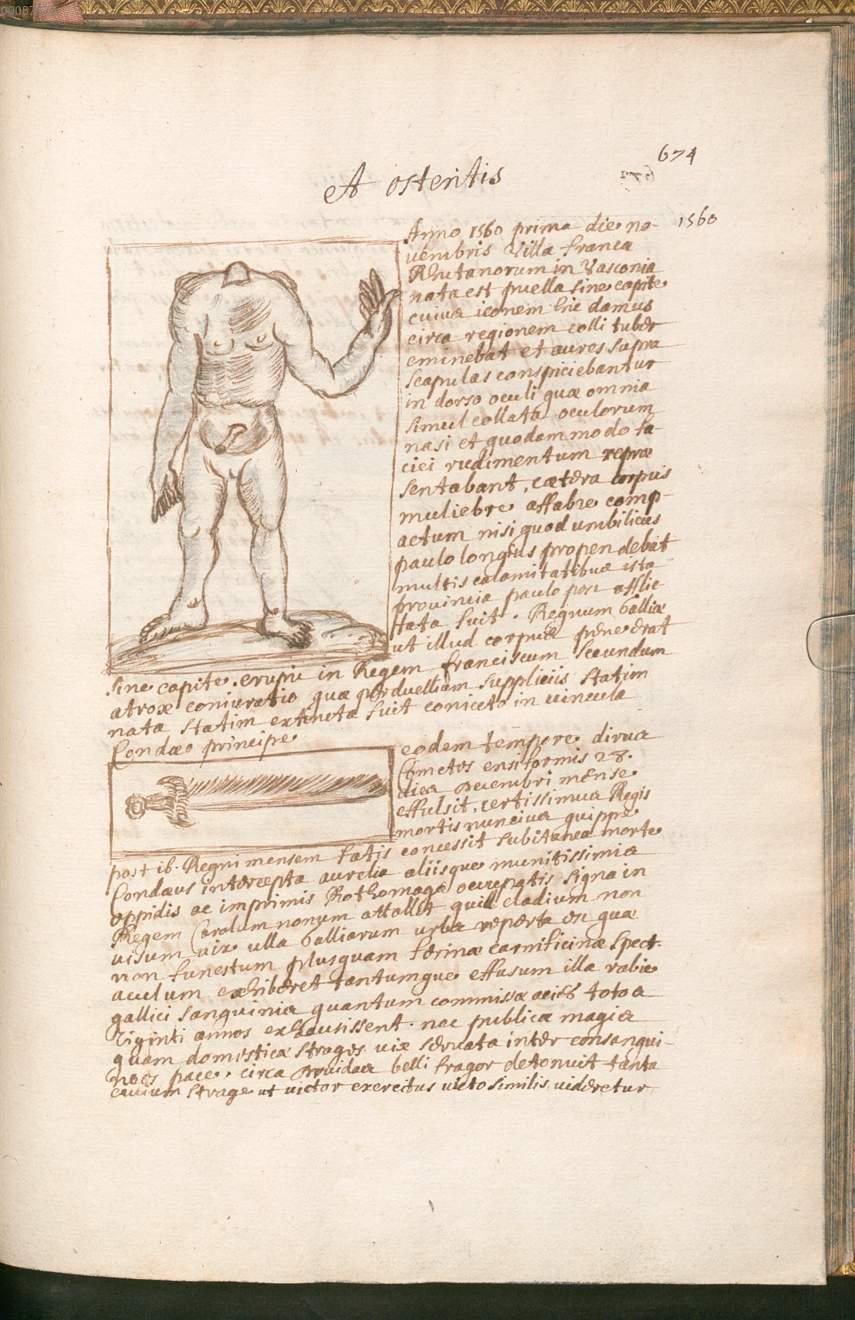 674
Et ostentis
1560
Anno 1560 prima die no-
uembris Villa franca
Rhutanorum in Vasconia
nata est puella sine capite
cuius iconem hic damus
circa regionem colli tuber
eminebat et aures supra
scapulas conspiciebantur
in dorso oculi quæ omnia
simul collata oculorum
nasi et quodam modo fa-
ciei rudimentum repræ
sentabant, cætera corpus
muliebre affabre comp-
actum nisi quod umbilicus
paulo longius propendebat
multis calamitatibus ista
prouincia paulo post afflic
tata fuit. Regnum Galliæ
ut illud corpus pene erat
sine capite. erupit in Regem franciscum secundum
atrox coniuratio quæ perduellium suppliciis statim
nata statim extincta fuit coniecto in uincula
Condæo principe
eodem tempore dirus
Cometes ensiformis 28.
dies Decembri mense
effulsit, certissimus Regis
mortis nuncius quippe
post 16. Regni mensem fatis concessit subitanea morte
Condæus intercepta aurelia aliisque munitissimis
oppidis ac imprimis Rothomago occupatis signa in
Regem Carolum nonum attollit quid cladium non
uisum uix ulla Galliarum urbs reperta est quæ
non funestum plusquam ferinæ carnificinæ spect-
aculum exhiberet tantumque effusum illa rabie
gallici sanguinis quantum commissæ acies totos
uiginti annos exhausissent. nec publica magis
quam domestica strages uix seruata inter consangui-
neos pace. circa Druidas belli fragor detonuit tanta
ciuium strage ut uictor exercitus uicto similis uideretur